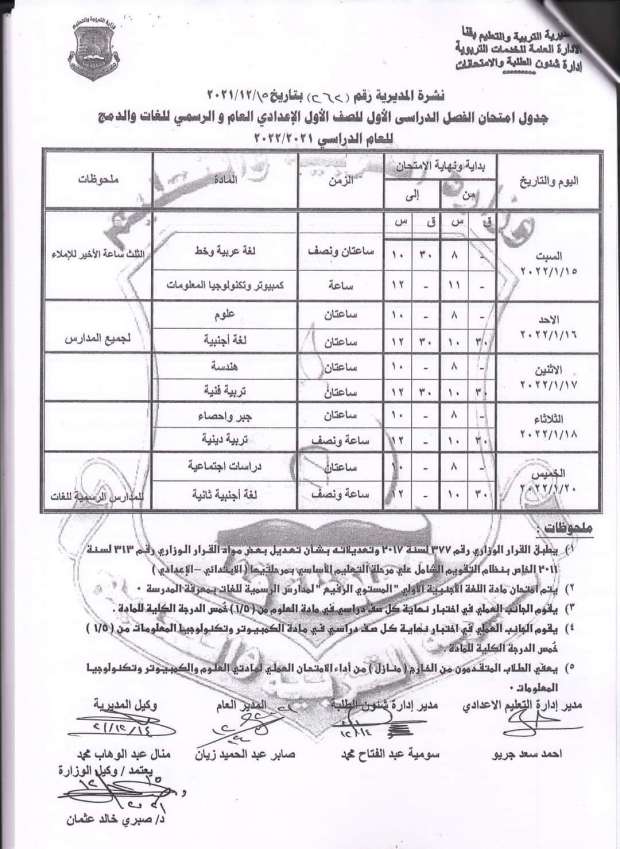 مديرية التربية والتعليم بقنا
الإدارة العامة للخدمات التربوية
إدارة شئون الطلبة والامتحانات
نشرة المديرية رقم (٢٦٢) بتاريخ ٢٠٢١/١٢/١٥
جدول امتحان الفصل الدراسى الأول للصف الأول الإعدادي العام و الرسمي للغات والدمج
للعام الدراسي ٢٠٢٢/٢٠٢١
اليوم والتاريخ بداية ونهاية الإمتحان الزمن المادة ملحوظات
من إلى
ق س ق س
السبت ٢٠٢٢/١/١٥ - ٨ ٣٠ ١٠ ساعتان ونصف لغة عربية وخط الثلث ساعة الأخير للإملاء
- ١١ - ١٢ ساعة كمبيوتر وتكنولوجيا المعلومات
الاحد ٢٠٢٢/١/١٦ - ٨ - ١٠ ساعتان علوم
٣٠ ١٠ ٣٠ ١٢ ساعتان لغة أجنبية لجميع المدارس
الاثنين ٢٠٢٢/١/١٧ - ٨ - ١٠ ساعتان هندسة
٣٠ ١٠ ٣٠ ١٢ ساعتان تربية فنية
الثلاثاء ٢٠٢٢/١/١٨ - ٨ - ١٠ ساعتان جبر واحصاء
٣٠ ١٠ - ١٢ ساعة ونصف تربية دينية
الخميس ٢٠٢٢/١/٢٠ - ٨ - ١٠ ساعتان دراسات اجتماعية
٣٠ ١٠ - ١٢ ساعة ونصف لغة أجنبية ثانية للمدارس الرسمية للغات
ملحوظات :
١) يطبق القرار الوزاري رقم ٣٧٧ لسنة ٢٠١٧ وتعديلاته بشأن تعديل بعض مواد القرار الوزاري رقم ٣١٣ لسنة
٢٠١١ الخاص بنظام التقويم الشامل علي مرحلة التعليم الأساسي بمرحلتيها ( الابتدائي – الإعدادي )
٢) يتم امتحان مادة اللغة الأجنبية الأولي " المستوي الرفيع " لمدارس الرسمية للغات بمعرفة المدرسة .
٣) يقوم الجانب العملي في اختبار نهاية كل صف دراسي في مادة العلوم من (١/٥) خُمس الدرجة الكلية للمادة .
٤) يقوم الجانب العملي في اختبار نهاية كل صف دراسي في مادة الكمبيوتر وتكنولوجيا المعلومات من ( ١/٥ )
خُمس الدرجة الكلية للمادة .
٥) يعفي الطلاب المتقدمون من الخارج ( منازل ) من أداء الامتحان العملي لمادتي العلوم والكمبيوتر وتكنولوجيا
المعلومات .
مدير إدارة التعليم الاعدادي مدير إدارة شئون الطلبة المدير العام وكيل المديرية
احمد سعد جريو سومية عبد الفتاح محمد صابر عبد الحميد زيان منال عبد الوهاب محمد
يعتمد / وكيل الوزارة
د/ صبري خالد عثمان